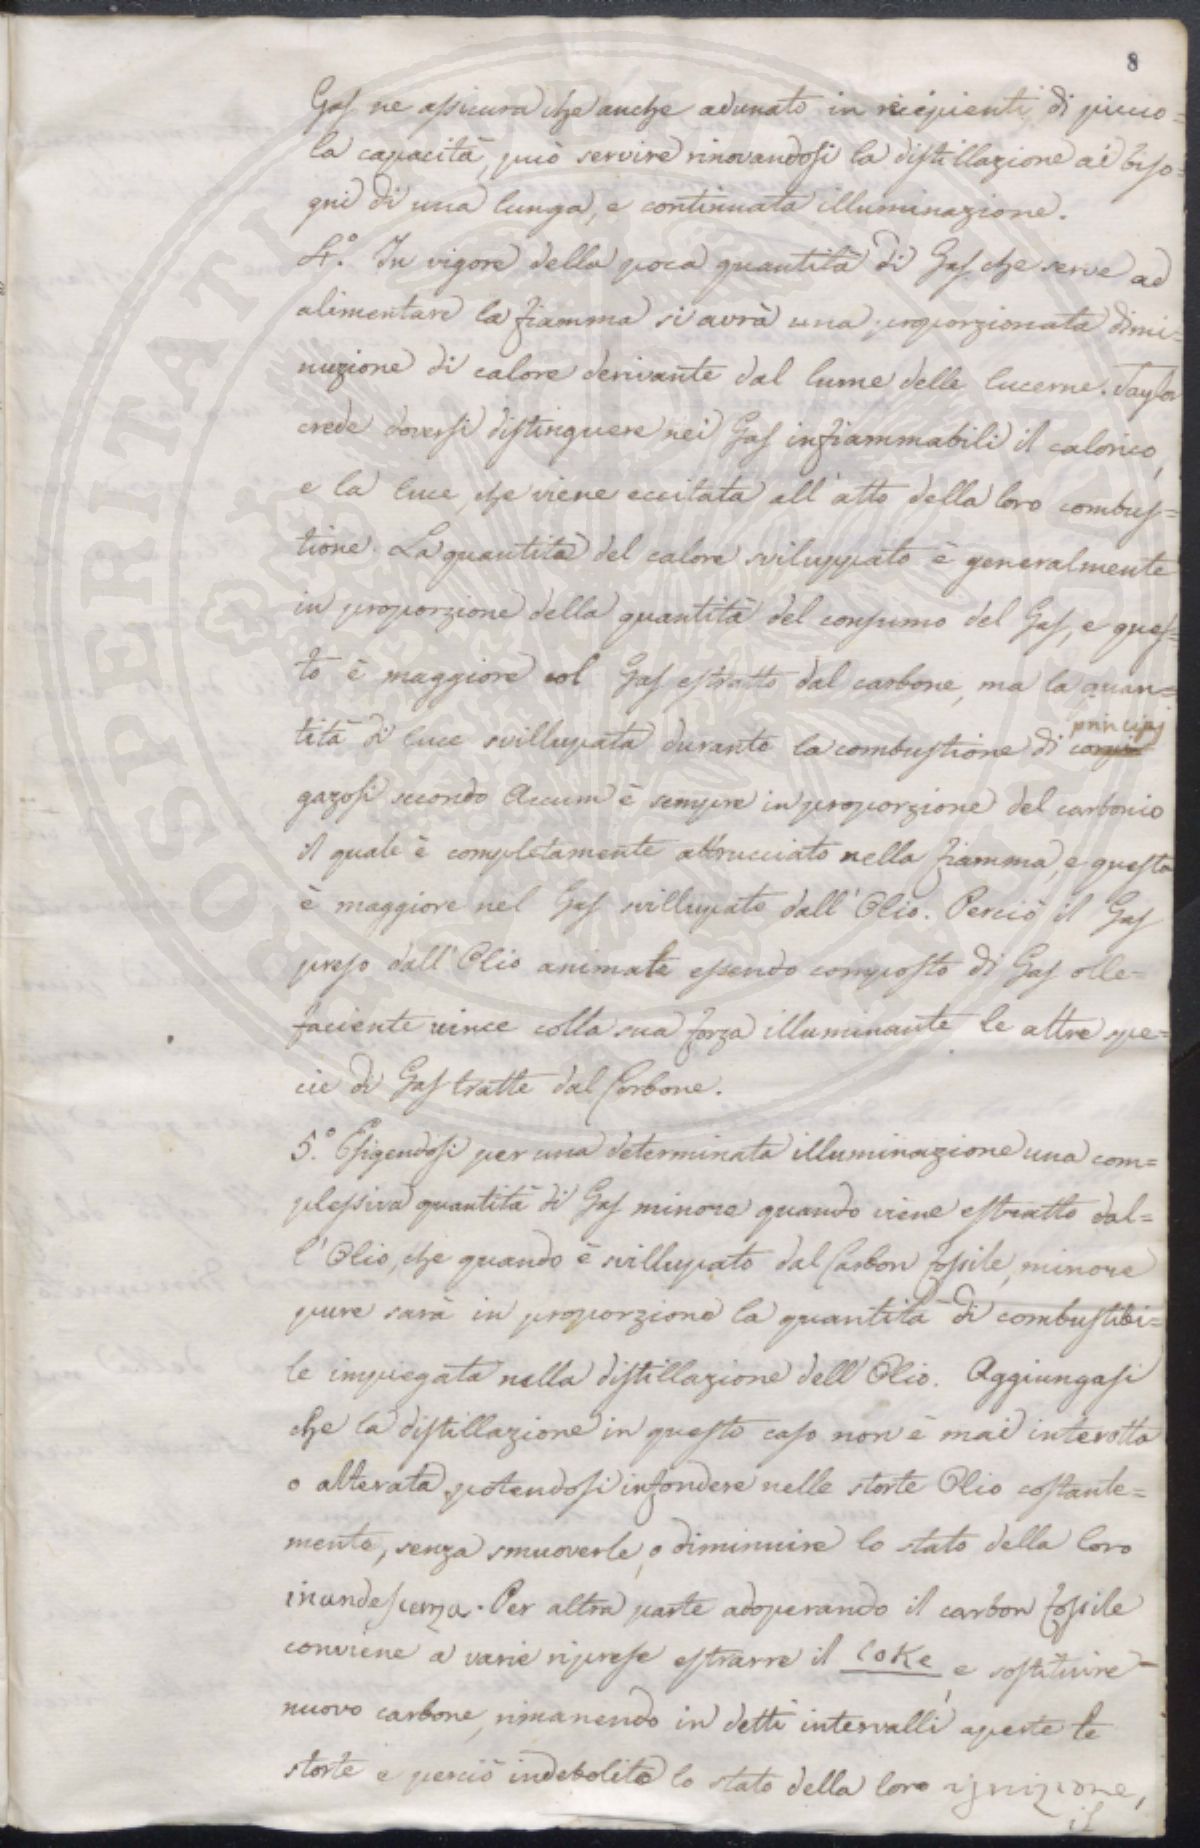 8
Gas ne assicura che anche adunato in recipienti di piccio=
la capacità, può servire rinovandosi la distillazione ai biso=
gni di una lunga, e continuata illuminazione.
4.° In vigore della poca quantità di Gas che serve ad
alimentare la fiamma si avrà una proporzionata dimi=
nuzione di calore derivante dal lume delle lucerne. Taylor
crede doversi distinguere nei Gas infiammabili il calorico,
e la luce, che viene eccitata all'atto della loro combus=
tione. La quantità del calore sviluppato è generalmente
in proporzione della quantità del consumo del Gas, e ques=
to è maggiore col Gas estratto dal carbone, ma la quan=
principj
tità di luce svillupata durante la combustione di corpi
gazosi secondo Accum è sempre in proporzione del carbonio
il quale è completamente abbrucciato nella fiamma, e questo
è maggiore nel Gas svillupato dall'Olio. Perciò il Gas
preso dall'Olio animale essendo composto di Gas olle=
faciente vince colla sua forza illuminante le altre spe=
cie di Gas tratte dal Carbone.
5.° Esigendosi per una determinata illuminazione una com=
plessiva quantità di Gas minore quando viene estratto dal=
l'Olio, che quando è svillupato dal Carbon fossile, minore
pure sarà in proporzione la quantità di combustibi=
le impiegata nella distillazione dell'Olio. Aggiungasi
che la distillazione in questo caso non è mai interotta
o alterata, potendosi infondere nelle storte Olio costante=
mente, senza smuoverle, o diminuire lo stato della loro
incandescenza. Per altra parte adoperando il carbon fossile
conviene a varie riprese estrarre il Coke, e sostituire
nuovo carbone, rimanendo in detti intervalli aperte le
storte e perciò indebolito lo stato della loro ignizione,
il